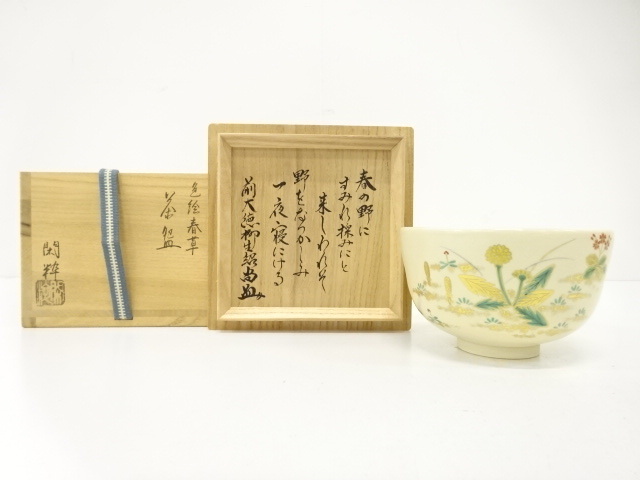 春の野に
すみれ採みにと
来しわれそ
野をなつかしみ
一夜寝にける
前大徳柳生紹尚
色絵春草
茶盌
閑粋